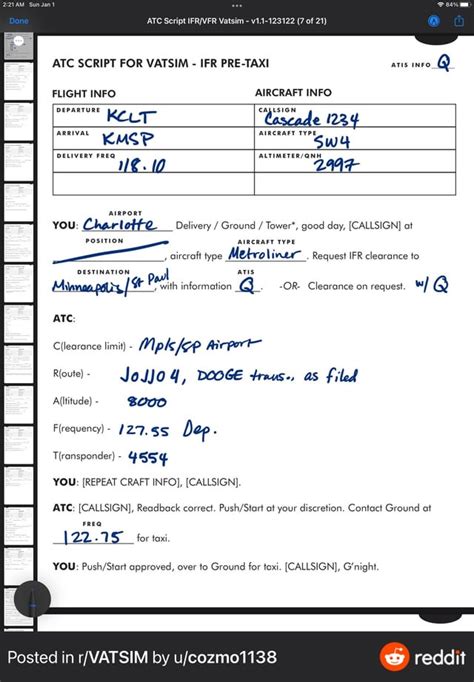 2:21 AM Sun Jan 1
84%
Done
ATC Script IFR/VFR Vatsim - v1.1-123122 (7 of 21)
ATC SCRIPT FOR VATSIM - IFR PRE-TAXI
ATIS INFO Q
FLIGHT INFO
AIRCRAFT INFO
DEPARTURE KCLT
CALLSIGN Cascade 1234
ARRIVAL KMSP
AIRCRAFT TYPE SW4
DELIVERY FREQ 118.10
ALTIMETER/QNH 2997
AIRPORT
YOU: Charlotte Delivery / Ground / Tower*, good day, [CALLSIGN] at
POSITION AIRCRAFT TYPE
, aircraft type Metroliner. Request IFR clearance to
DESTINATION ATIS
Minneapolis/St Paul, with information Q. -OR- Clearance on request. w/ Q
ATC:
C(learance limit) - Mpls/SP Airport
R(oute) - JOJJO4, DOOGE trans., as filed
A(ltitude) - 8000
F(requency) - 127.55 Dep.
T(ransponder) - 4554
YOU: [REPEAT CRAFT INFO], [CALLSIGN].
ATC: [CALLSIGN], Readback correct. Push/Start at your discretion. Contact Ground at
FREQ
122.75 for taxi.
YOU: Push/Start approved, over to Ground for taxi. [CALLSIGN], G'night.
Posted in r/VATSIM by u/cozmo1138
reddit